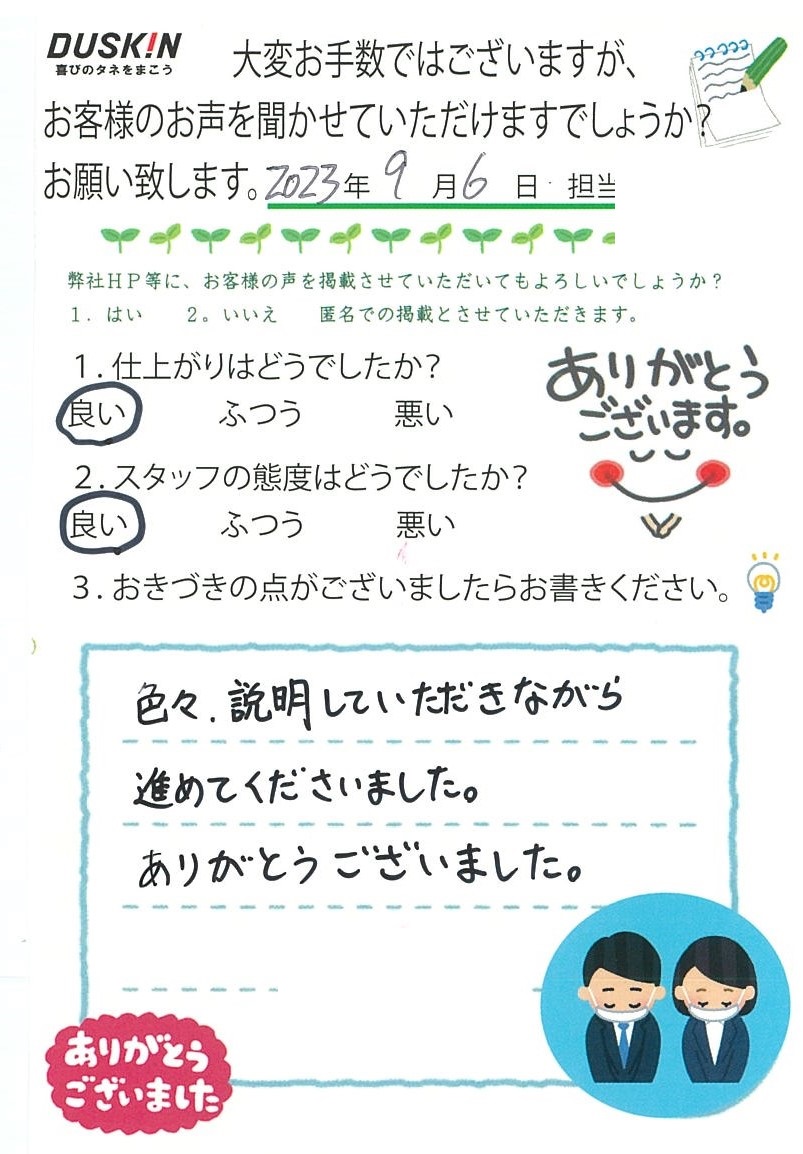 DUSK!N
喜びのタネをまこう
大変お手数ではございますが、
お客様のお声を聞かせていただけますでしょうか?
お願い致します。2023年 9 月 6 日 担当
弊社HP等に、お客様の声を掲載させていただいてもよろしいでしょうか?
1. はい 2。いいえ 匿名での掲載とさせていただきます。
1.仕上がりはどうでしたか?
良い ふつう 悪い
ありがとう
ございます。
2.スタッフの態度はどうでしたか?
良い ふつう 悪い
3.おきづきの点がございましたらお書きください。
色々、説明していただきながら
進めてくださいました。
ありがとうございました。
ありがとう
ございました